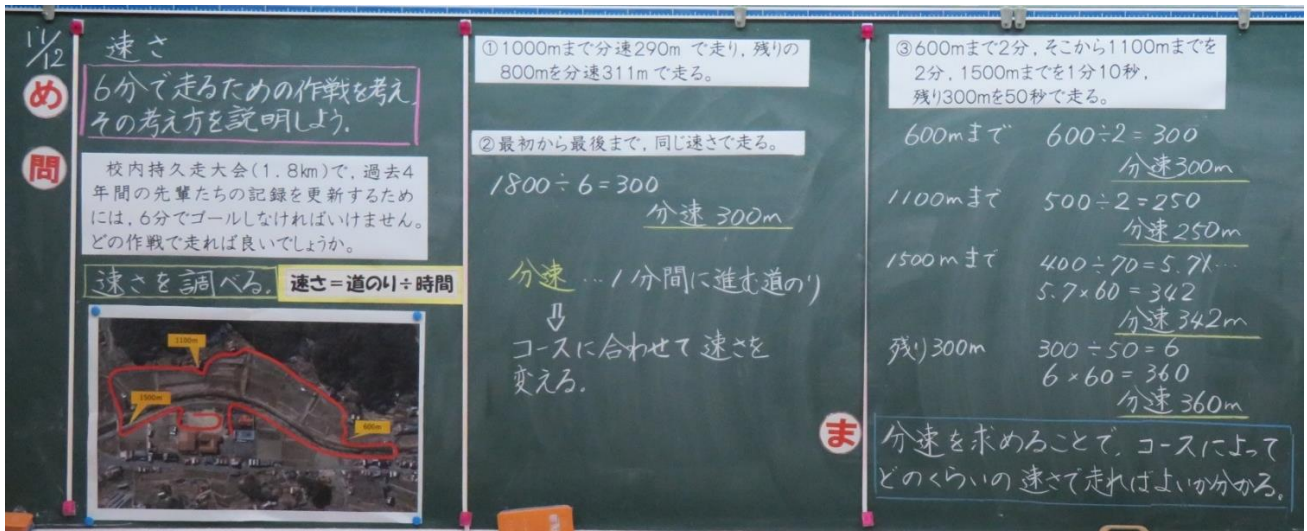 11/12
速さ
め
6分で走るための作戦を考え,
その考え方を説明しよう.
問
校内持久走大会(1.8km)で,過去4
年間の先輩たちの記録を更新するため
には,6分でゴールしなければいけません。
どの作戦で走れば良いでしょうか。
速さを調べる.
速さ=道のり÷時間
1100m
1500m
600m
①1000mまで分速290mで走り,残りの
800mを分速311mで走る。
②最初から最後まで,同じ速さで走る。
1800÷6=300
分速300m
分速…1分間に進む道のり
⇩
コースに合わせて速さを
変える.
③600mまで2分,そこから1100mまでを
2分,1500mまでを1分10秒,
残り300mを50秒で走る。
600mまで 600÷2=300
分速300m
1100mまで 500÷2=250
分速250m
1500mまで 400÷70=5.71…
5.7×60=342
分速342m
残り300m 300÷50=6
6×60=360
分速360m
ま
分速を求めることで,コースによって
どのくらいの速さで走ればよいか分かる.